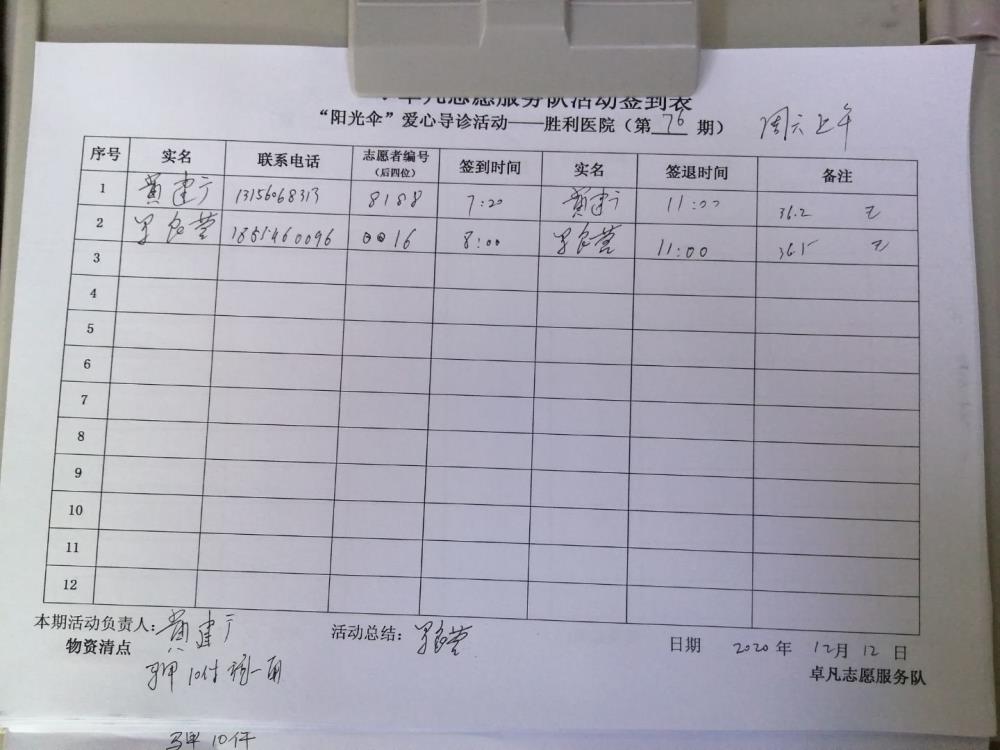 卓凡志愿服务队活动签到表
“阳光伞”爱心导诊活动——胜利医院（第 76 期） 周六上午
序号 实名 联系电话 志愿者编号（后四位） 签到时间 实名 签退时间 备注
1 黄建广 13156068313 8188 7:20 黄建广 11:00 36.2 无
2 0016 8:00 11:00 36.5 无
3
4
5
6
7
8
9
10
11
12
本期活动负责人：黄建广 活动总结： 日期 2020 年 12月 12 日
物资清点 卓凡志愿服务队
马甲 10件 一面
马甲 10件